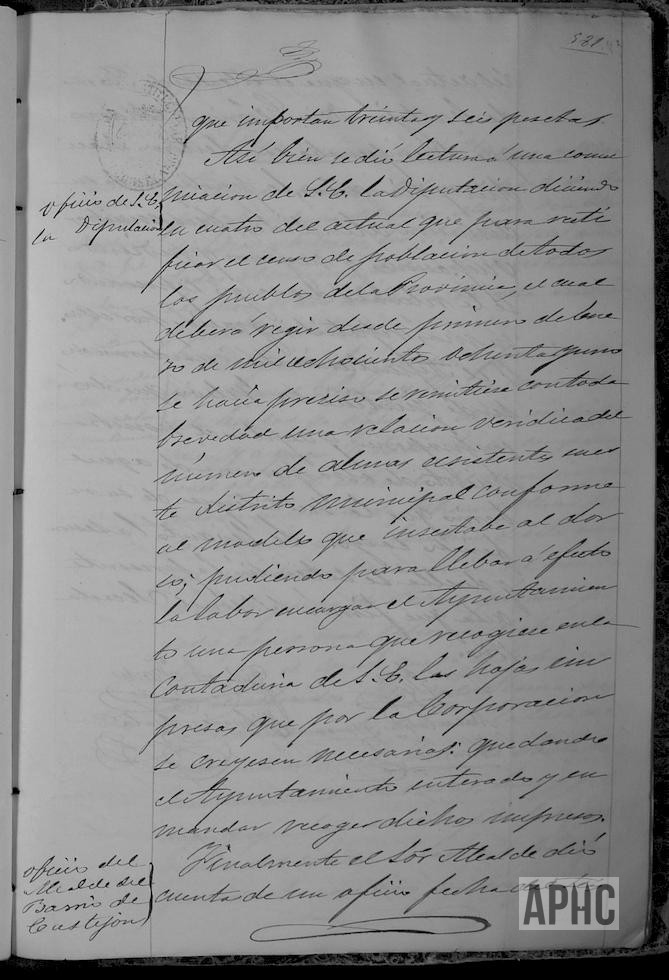 531
que importan treinta y seis pesetas.
Así bien se dió lectura á una comu
oficio de S.E.
la Diputacion
nicacion de S.E. la Diputacion diciendo
la cuatro del actual que para recti
ficar el censo de poblacion de todos
los pueblos de la Provincia, el cual
deberá regir desde primero de Ene
ro de mil ochocientos ochenta y uno
se hacia preciso se remitiese con toda
brevedad una relacion veridica del
número de almas existentes en es
te distrito municipal conforme
al modelo que insertaba al dor
so; pudiendo para llebar á efecto
la labor encargar el Ayuntamien
to una persona que recogiese en la
Contaduria de S.E. las hojas im
presas que por la Corporacion
se creyesen necesarias: quedando
el Ayuntamiento enterado y en
mandar recoger dichos impresos.
oficio del
Alcalde del
Barrio de
Castejon
Finalmente el Sor Alcalde dió
cuenta de un oficio fecha
APHC